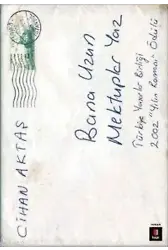 CİHAN AKTAŞ
Bana Uzun
Mektuplar Yaz
Türkiye Yazarlar Birliği
2002 "Yılın Romanı Ödülü"